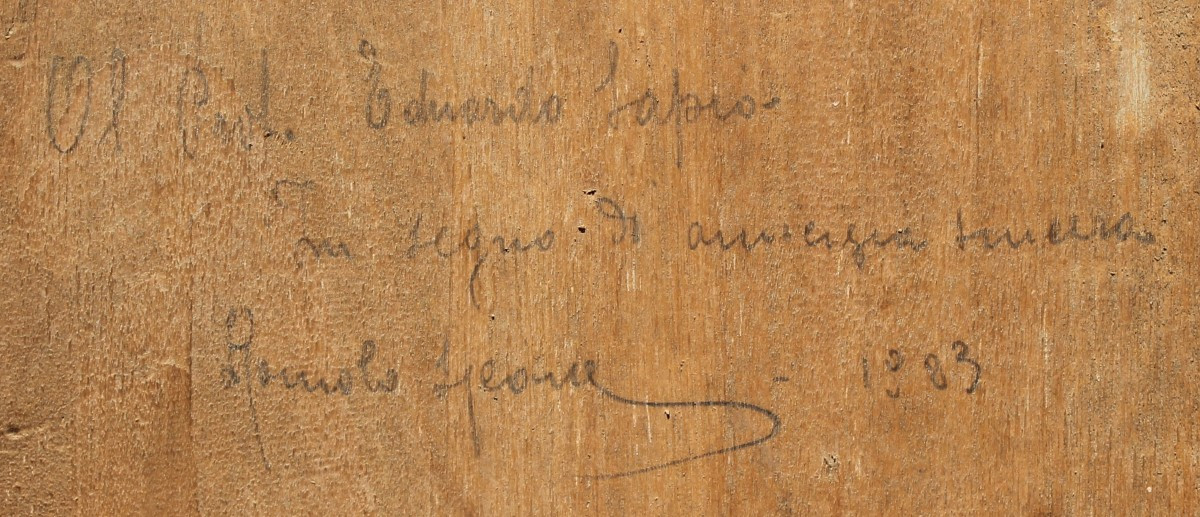 Al Prof. Eduardo Sapio
In segno di amicizia sincera
Romolo Leone - 1883